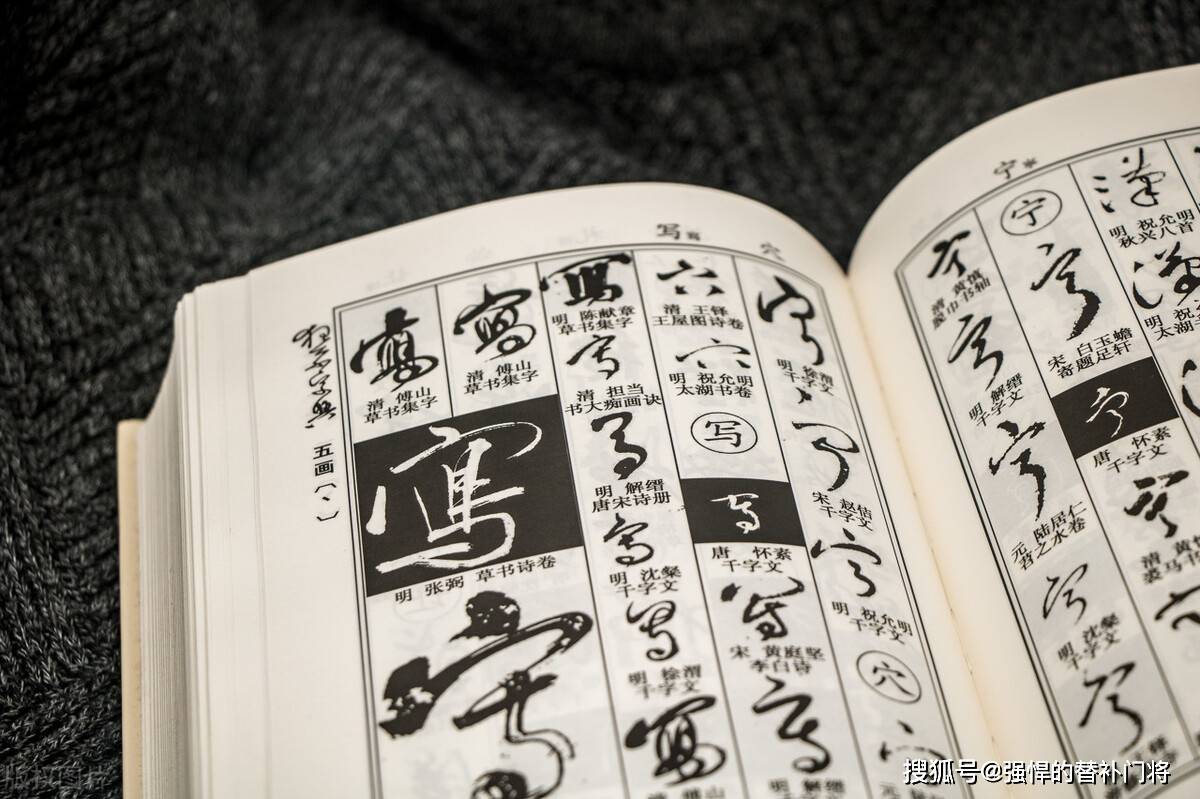 写寫
穴
狂草字典
五画〔丶〕
宁
明 徐渭
千字文
宋 赵佶
千字文
明 祝允明
千字文
穴
清 王铎
王屋图诗卷
明 祝允明
太湖书卷
写
唐 怀素
千字文
宋 黄庭坚
李白诗
明 解缙
明 陈献章
草书集字
清 担当
书大痴画诀
明 解缙
唐宋诗册
明 沈粲
千字文
明 徐渭
千字文
清 傅山
清 傅山
草书集字
清 傅山
草书集字
明 张弼 草书诗卷
明 祝允明
秋兴八首
宁
宋 白玉蟾
寄题足轩
唐 怀素
千字文
明 解缙
千字文
元 陆居仁
苕之水卷
明 沈粲
千字文
搜狐号@强悍的替补门将